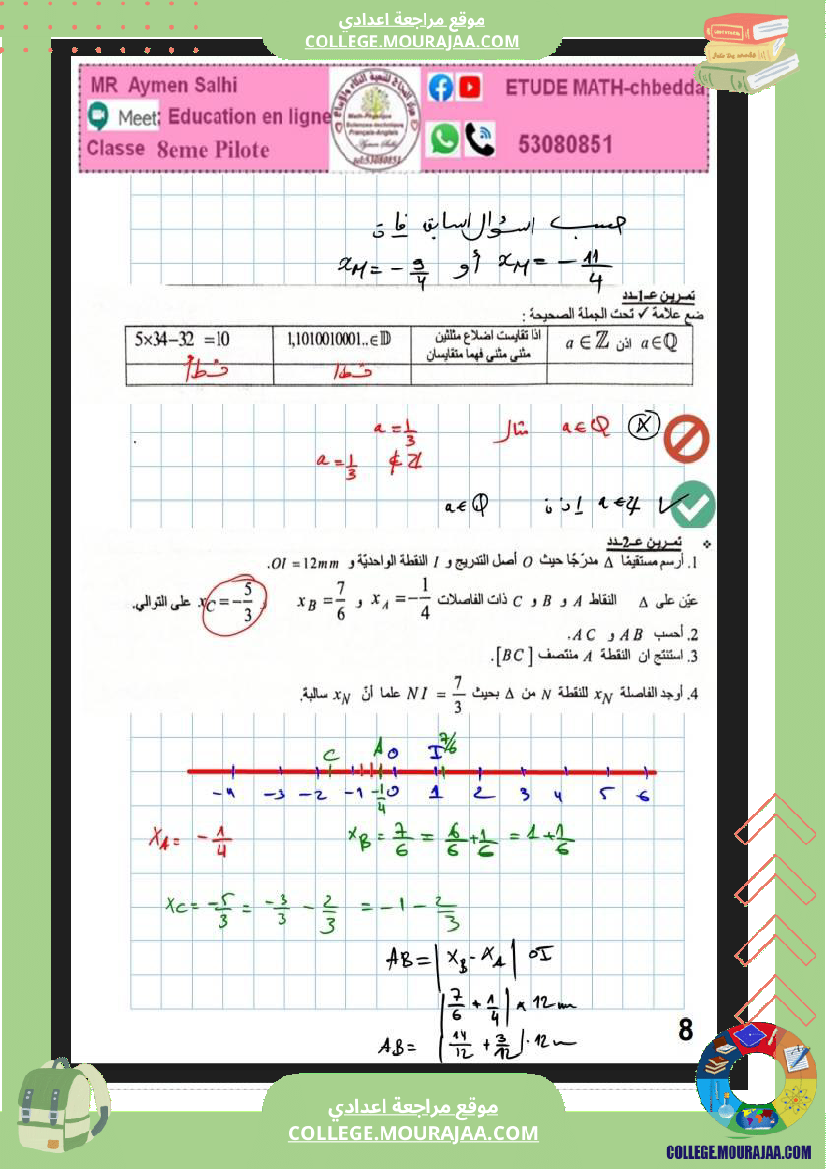 موقع مراجعة اعدادي
COLLEGE.MOURAJAA.COM
MR Aymen Salhi
ETUDE MATH-chbedda
Meet: Education en ligne
Classe 8eme Pilote
53080851
Math-Physique
Sciences-technique
Français-Anglais
Aymen Salhi
tel:53080851
حسب السؤال السابق فإن
xM = -11/4 أو xM = -9/4
تمرين عـ1ـدد
ضع علامة ✓ تحت الجملة الصحيحة :
a∈ℚ اذن a∈ℤ
اذا تقايست اضلاع مثلثين
مثنى مثنى فهما متقايسان
1,1010010001..∈𝔻
5×34−32 =10
خطأ
خطأ
a∈ℚ مثال a = 1/3
a = 1/3 ∉ ℤ
a∈ℤ إذن a∈ℚ
تمرين عـ2ـدد
1. أرسم مستقيمًا Δ مدرّجًا حيث O أصل التدريج و I النقطة الواحديّة و OI = 12mm.
عيّن على Δ النقاط A و B و C ذات الفاصلات xA = −1/4 و xB = 7/6 و xC = −5/3 على التوالي.
2. أحسب AB و AC.
3. استنتج ان النقطة A منتصف [BC].
4. أوجد الفاصلة xN للنقطة N من Δ بحيث NI = 7/3 علما أنّ xN سالبة.
C A O I 7/6
-4 -3 -2 -1 -1/4 0 1 2 3 4 5 6
XA = -1/4
XB = 7/6 = 6/6 + 1/6 = 1 + 1/6
XC = -5/3 = -3/3 - 2/3 = -1 - 2/3
AB = |XB - XA| OI
|7/6 + 1/4| × 12mm
AB = |14/12 + 3/12| · 12m
8
موقع مراجعة اعدادي
COLLEGE.MOURAJAA.COM
COLLEGE.MOURAJAA.COM